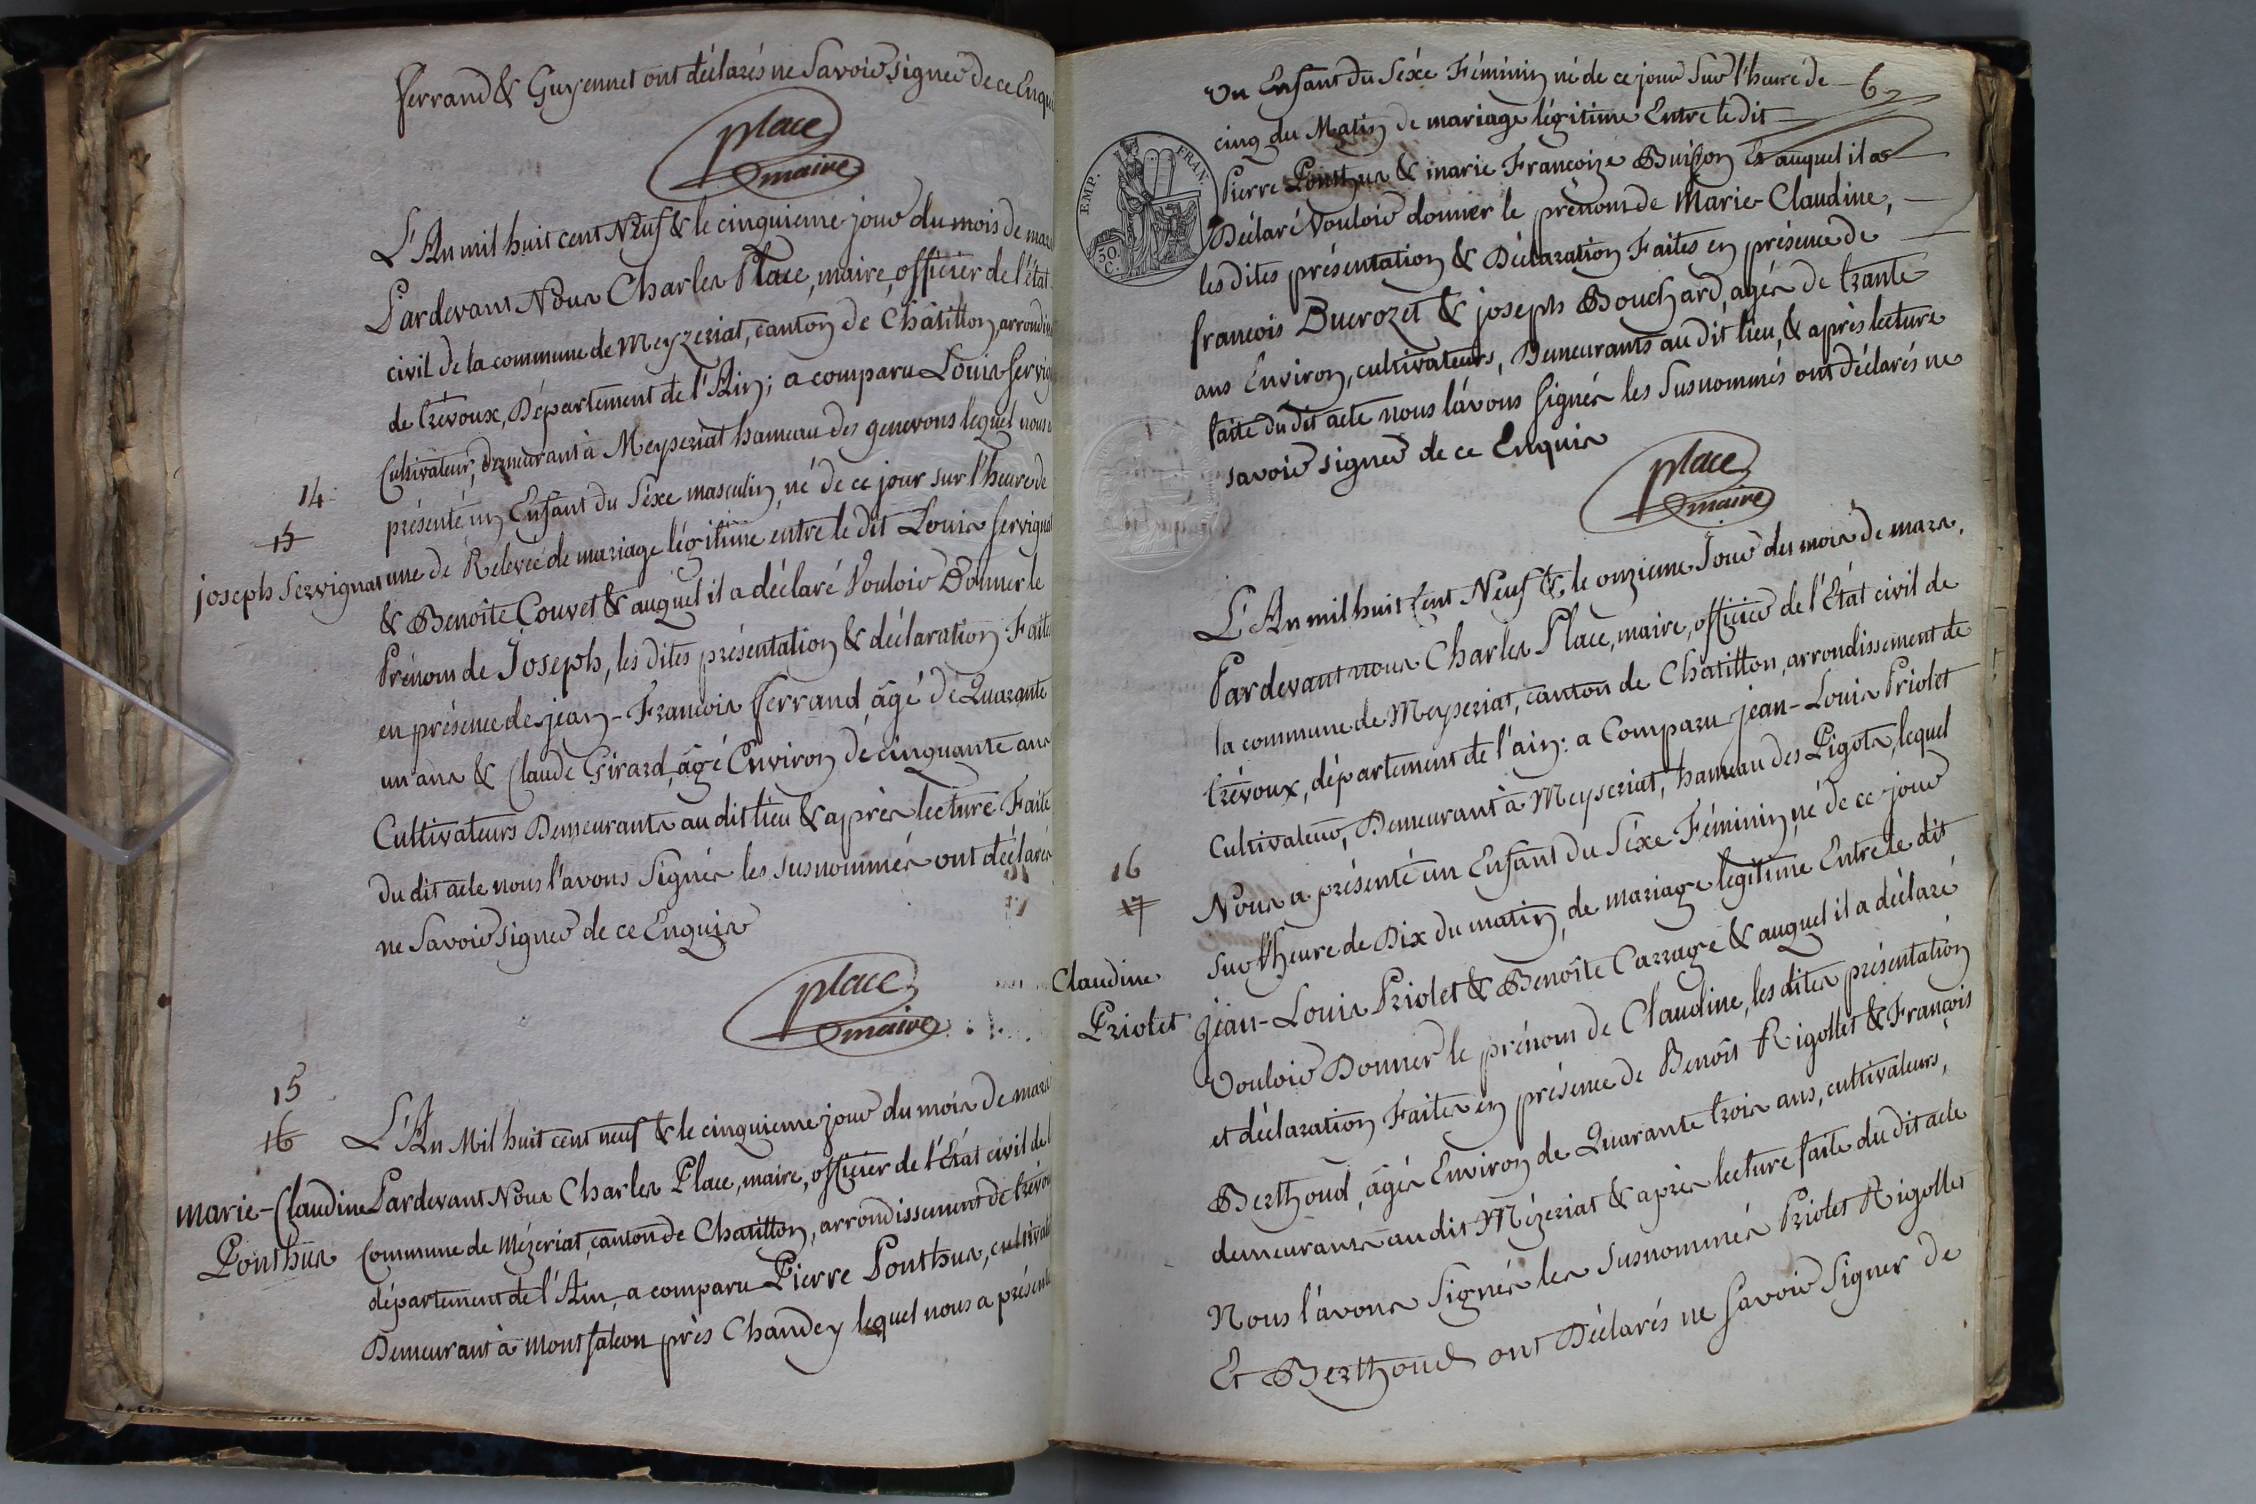 ferrand & Guyennet ont déclarés ne Savoir signer de ce Enqui
place
maire
L'An mil huit cent Neuf & le cinquieme jour du mois de mar
Pardevant Nous Charles Place, maire, officier de l'état
civil de la commune de Meyzeriat, canton de Châtillon, arrondi
de trévoux, Département de l'Ain; a comparu Louis Servig
Cultivateur, demeurant à Meyseriat hameau des genevons lequel nous a
14
présenté un Enfant du Séxe masculin, né de ce jour sur l'heure de
15
joseph Servignat
une de Relevée de mariage légitime entre le dit Louis Servignat
& Benoîte Couvet & auquel il a déclaré Vouloir Donner le
Prénom de Joseph, les dites présentation & déclaration Faites
en présence de jean-François ferrand, âgé de Quarante
un ans & Claude Girard, âgé Environ de cinquante ans
Cultivateurs Demeurants au dit lieu & après lecture Faite
du dit acte nous l'avons Signés les susnommés ont déclarés
ne Savoir signer de ce Enquis
place
maire
15
16
L'An Mil huit cent neuf & le cinquieme jour du mois de mars
marie-Claudine
Ponthus
Pardevant Nous Charles Place, maire, officier de l'Etat civil de l
Commune de Mézeriat, canton de Chatillon, arrondissement de trévou
département de l'Ain, a comparu Pierre Ponthus, cultivate
Demeurant à montfalcon près Chandey lequel nous a présenté
Un Enfant du Séxe Féminin né de ce jour Sur l'heure de
6
cinq du Matin de mariage légitime Entre le dit
EMP. FRAN.
30. C.
Pierre Ponthus & marie Françoize Buisson Et auquel il a
Déclaré Vouloir donner le prénom de Marie-Claudine,
les dites présentation & Déclaration Faites en présence de
françois Ducrozet & joseph Bouchard, agés de trante
ans Environ, cultivateurs, Demeurants au dit lieu, & après lecture
faite du dit acte nous l'avons signés les Susnommés ont déclarés ne
savoir signer de ce Enquis
place
maire
L'An mil huit Cent Neuf & le onzieme Jour du mois de mars,
Pardevant nous Charles Place, maire, officier de l'Etat civil de
la commune de Meyseriat, canton de Châtillon, arrondissement de
trévoux, département de l'ain: a Comparu jean-Louis Priolet
Cultivateur, Demeurant à Meyseriat, hameau des Pigots, lequel
16
17
Nous a présenté un Enfant du Séxe Féminin, né de ce jour
sur l'heure de Dix du matin, de mariage légitime Entre le dit
Claudine
Priolet
jean-Louis Priolet & Benoîte Carrage & auquel il a déclaré
Vouloir Donner le prénom de Claudine, les dites présentation
et déclaration Faites en présence de Benoît Rigollet & François
Berthoud, âgés Environ de Quarante trois ans, cultivateurs,
demeurants au dit Mézeriat & après lecture faite du dit acte
Nous l'avons Signés les susnommés Priolet Rigollet
Et Berthoud ont Déclarés ne Savoir Signer de